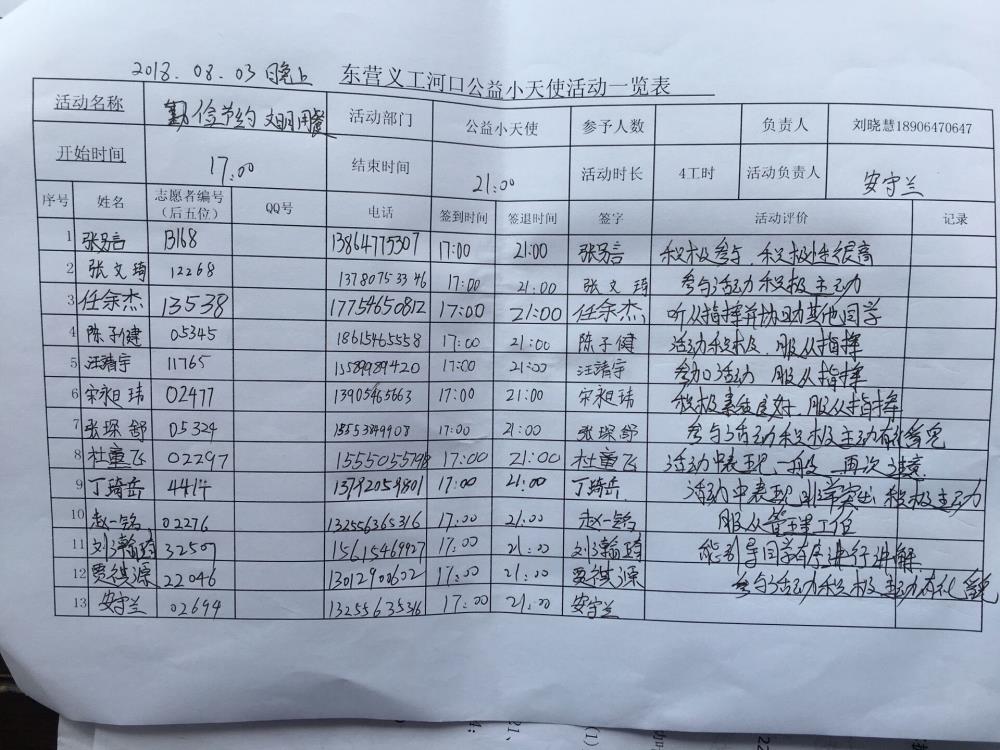 2018.08.03 晚上 东营义工河口公益小天使活动一览表
活动名称 勤俭节约 文明用餐 活动部门 公益小天使 参予人数 负责人 刘晓慧18906470647
开始时间 17:00 结束时间 21:00 活动时长 4工时 活动负责人 安守兰
序号 姓名 志愿者编号（后五位） QQ号 电话 签到时间 签退时间 签字 活动评价 记录
1 张易言 13168 13864775307 17:00 21:00 张易言 积极参与，积极性很高
2 张文琦 12268 13780753346 17:00 21:00 张文琦 参与活动积极主动
3 任余杰 13538 17754650812 17:00 21:00 任余杰 听从指挥并协助其他同学
4 陈子健 05345 18615465558 17:00 21:00 陈子健 活动积极，服从指挥
5 汪靖宇 11765 15589989420 17:00 21:00 汪靖宇 参加活动 服从指挥
6 宋昶玮 02477 13905465663 17:00 21:00 宋昶玮 积极表现良好，服从指挥
7 张琛舒 05324 15553849908 17:00 21:00 张琛舒 参与活动积极主动有礼貌
8 杜童飞 02297 1555055798 17:00 21:00 杜童飞 活动中表现一般 再次注意
9 丁琦岳 4414 13792059801 17:00 21:00 丁琦岳 活动中表现非常突出 积极主动
10 赵一铭 02276 132556365316 17:00 21:00 赵一铭 服从管理工作
11 刘瀚琦 32507 15615469927 17:00 21:00 刘瀚琦 能引导同学有序进行讲解
12 贾祺源 22046 13012900602 17:00 21:00 贾祺源 参与活动积极主动有礼貌
13 安守兰 02694 13255635316 17:00 21:00 安守兰